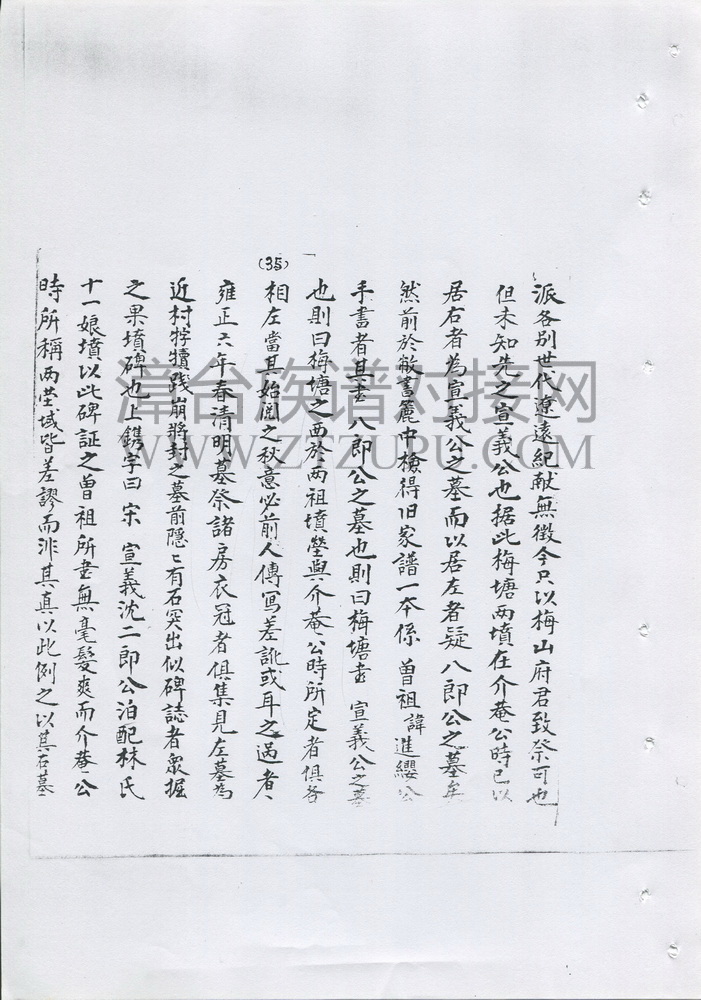 派各别世代遼遠紀献無徵今只以梅山府君致祭可也
但未知先之宣義公也据此梅塘两墳在介菴公時已以
居右者為宣義公之墓而以居左者疑八郎公之墓矣
然前於敝書簏中檢得旧家譜一本係 曾祖諱進纓公
手書者其書 八郎公之墓也則曰梅塘東 宣義公之墓
也則曰梅塘之西於两祖墳塋與介菴公時所定者俱各
(35)
相左當其始閱之秋意必前人傳寫差訛或耳之過者
雍正六年春清明墓祭諸房衣冠者俱集見左墓為
近村牸犢践崩將封之墓前隱〻有石突出似碑誌者眾掘
之果墳碑也上鐫字曰 宋 宣義沈二郎公洎配林氏
十一娘墳以此碑証之曾祖所書無毫髮爽而介菴公
時所稱两塋域皆差謬而非其真以此例之以其右墓
漳台族谱对接网
WWW.ZTZUPU.COM